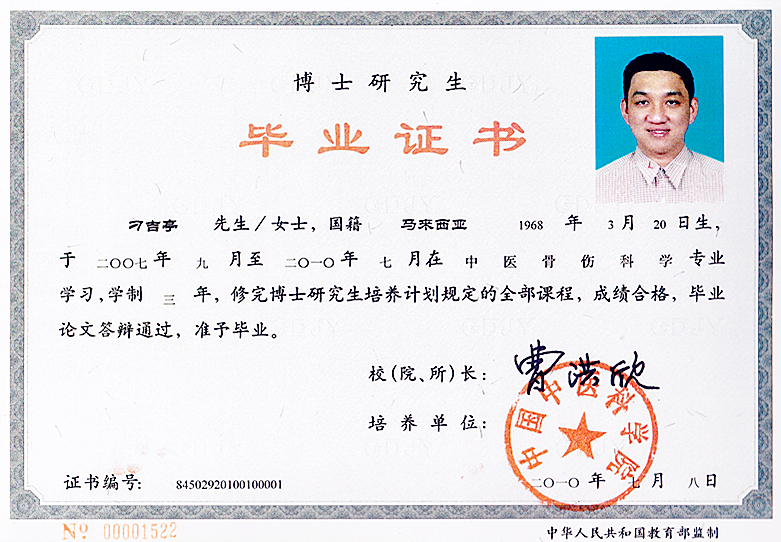 博士研究生
毕业证书
刁吉亭 先生／女士，国籍 马来西亚 1968 年 3 月 20 日生，
于 二〇〇七 年 九 月至 二〇一〇 年 七 月在 中医骨伤科学 专业
学习，学制 三 年，修完博士研究生培养计划规定的全部课程，成绩合格，毕业
论文答辩通过，准予毕业。
校（院、所）长： 曹洪欣
培养单位：
中国中医科学院
证书编号： 84502920100100001 二〇一〇 年 七 月 八 日
No 00001522 中华人民共和国教育部监制